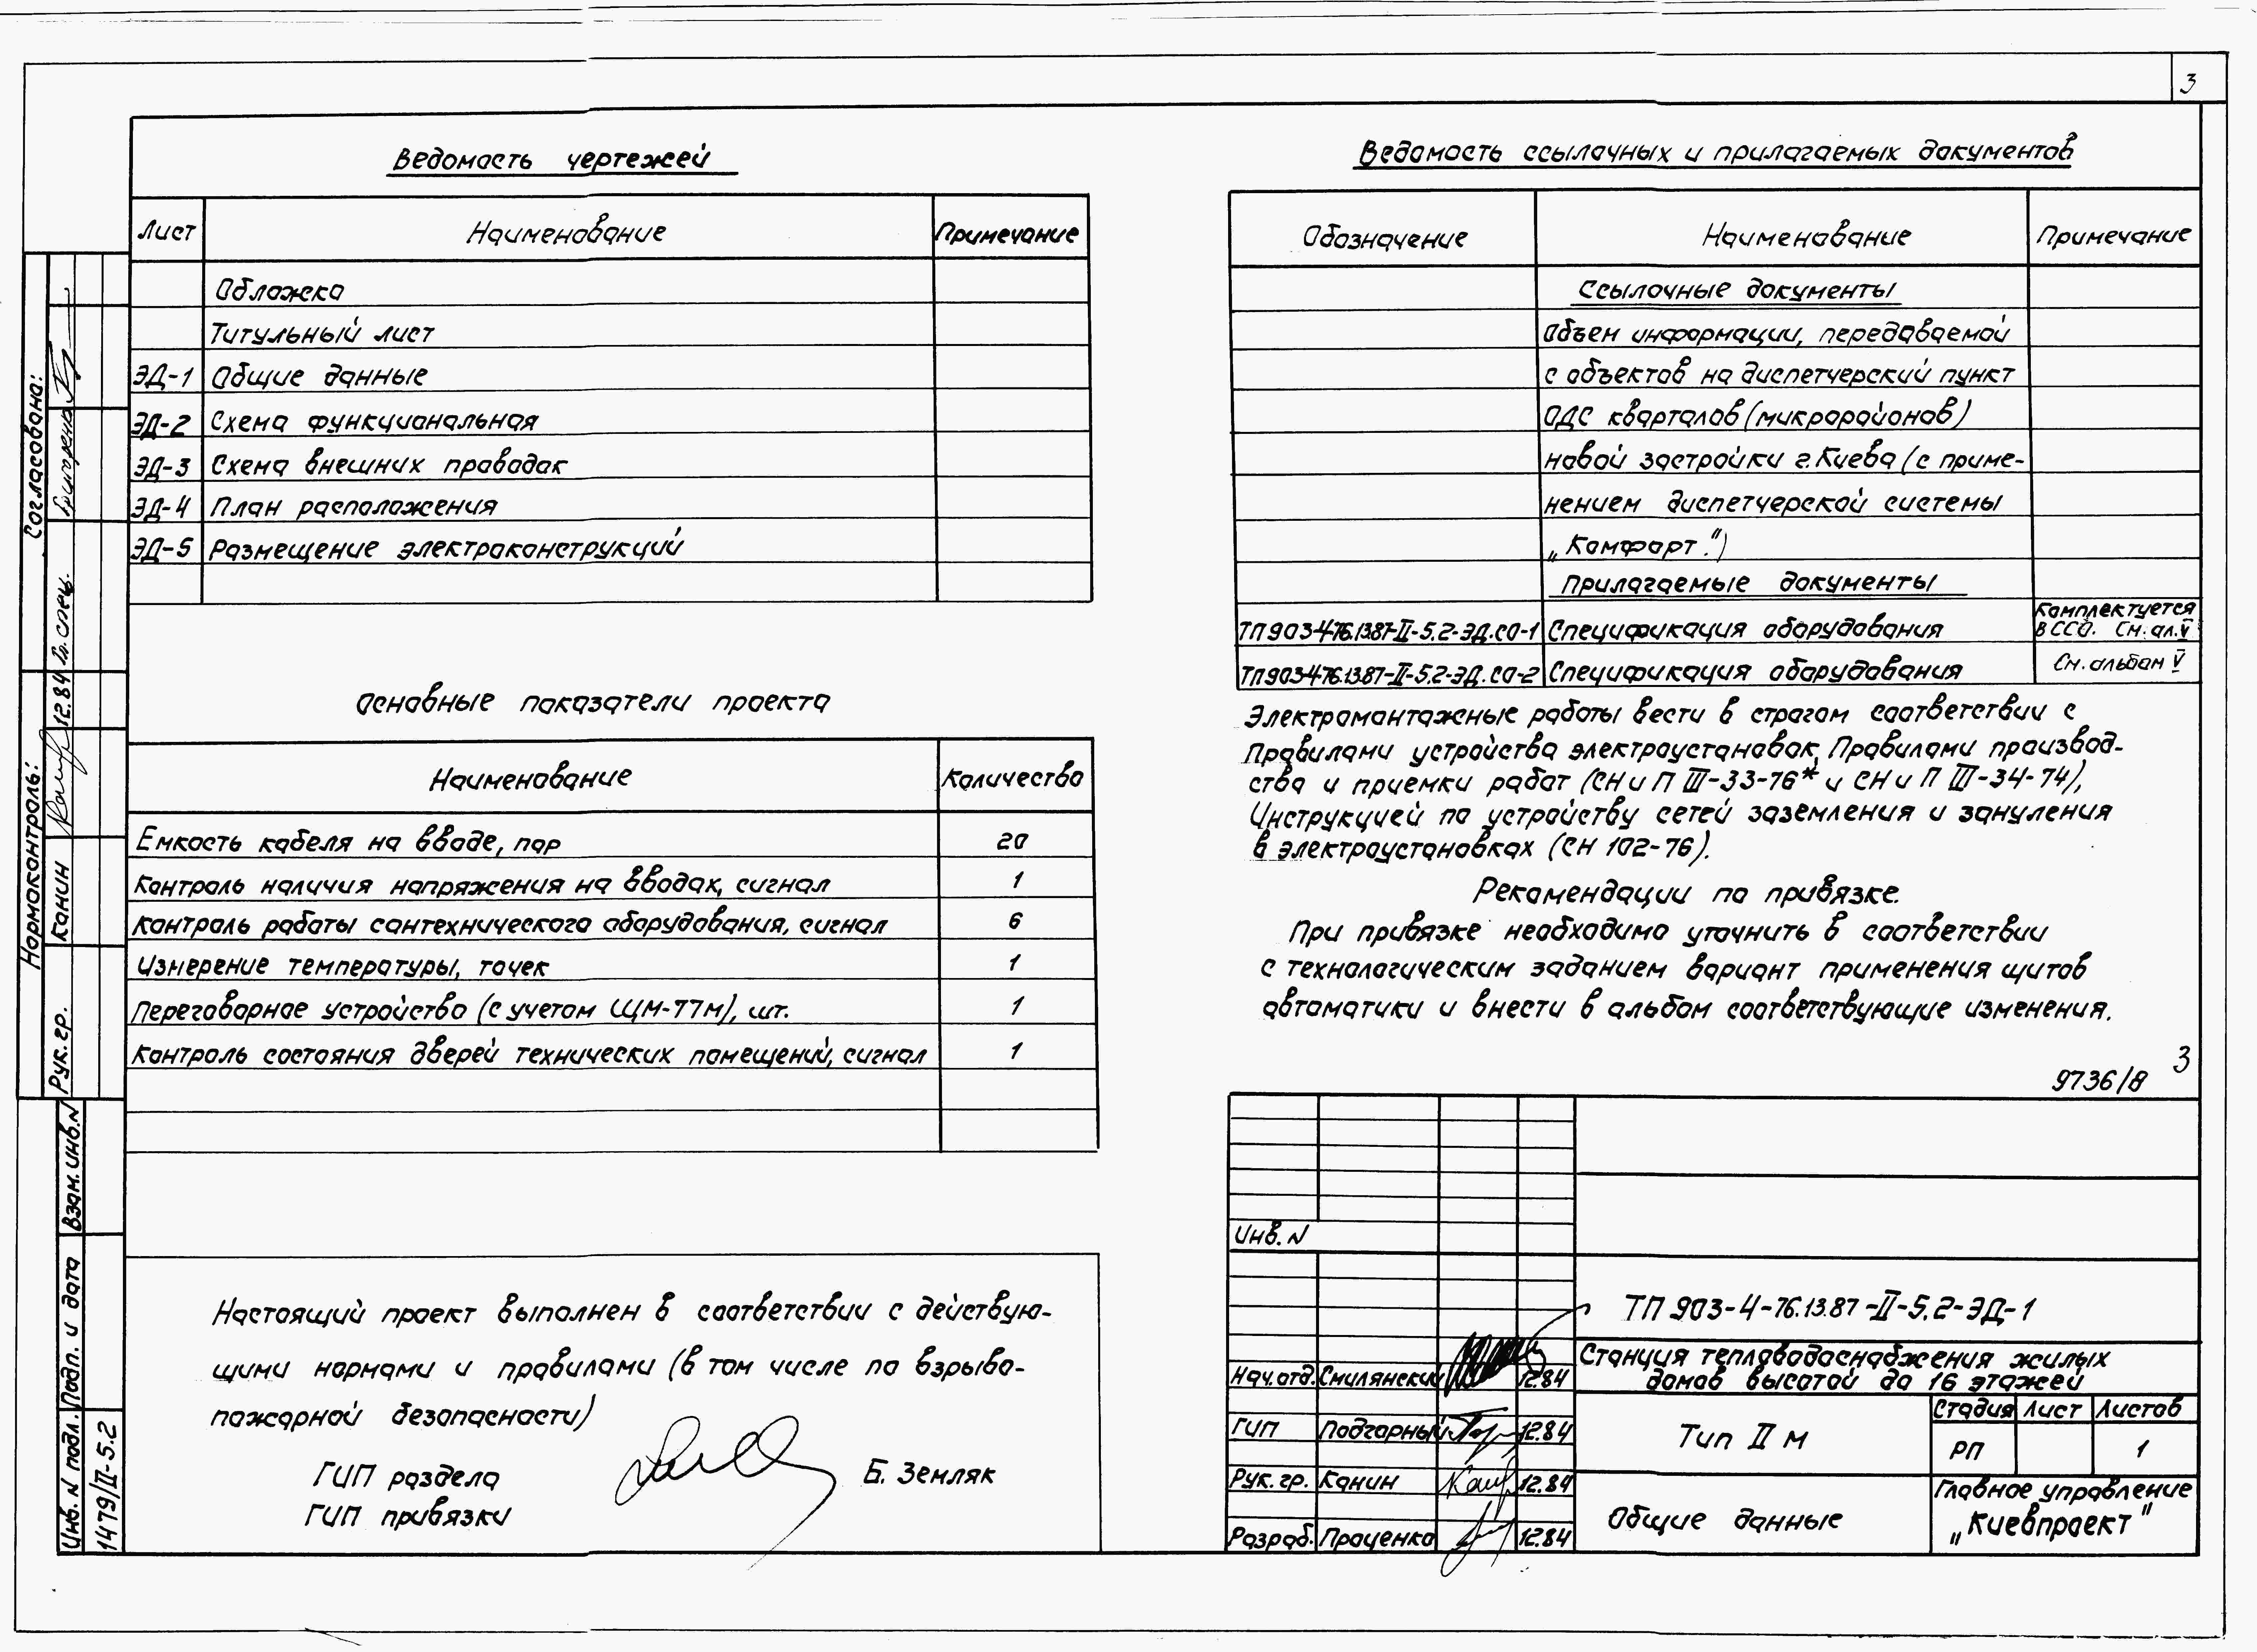 3
Ведомость чертежей
Лист Наименование Примечание
Обложка
Титульный лист
ЭД-1 Общие данные
ЭД-2 Схема функциональная
ЭД-3 Схема внешних проводок
ЭД-4 План расположения
ЭД-5 Размещение электроконструкций
Основные показатели проекта
Наименование Количество
Емкость кабеля на вводе, пар 20
Контроль наличия напряжения на вводах, сигнал 1
Контроль работы сантехнического оборудования, сигнал 6
Измерение температуры, точек 1
Переговорное устройство (с учетом ЩМ-77М), шт. 1
Контроль состояния дверей технических помещений, сигнал 1
Настоящий проект выполнен в соответствии с действую-
щими нормами и правилами (в том числе по взрыво-
пожарной безопасности)
ГИП раздела Б. Земляк
ГИП привязки
Ведомость ссылочных и прилагаемых документов
Обозначение Наименование Примечание
Ссылочные документы
Объем информации, передаваемой
с объектов на диспетчерский пункт
ОДС кварталов (микрорайонов)
новой застройки г. Киева (с приме-
нением диспетчерской системы
„Комфорт.")
Прилагаемые документы
ТП903-4-76.13.87-II-5.2-ЭД.СО-1 Спецификация оборудования Комплектуется
в ССО. См. ал. V
ТП903-4-76.13.87-II-5.2-ЭД.СО-2 Спецификация оборудования См. альбом V
Электромонтажные работы вести в строгом соответствии с
Правилами устройства электроустановок, Правилами производ-
ства и приемки работ (СНиП III-33-76* и СНиП III-34-74),
Инструкцией по устройству сетей заземления и зануления
в электроустановках (СН 102-76).
Рекомендации по привязке.
При привязке необходимо уточнить в соответствии
с технологическим заданием вариант применения щитов
автоматики и внести в альбом соответствующие изменения.
9736/8 3
Инв. N
ТП 903-4-76.13.87-II-5.2-ЭД-1
Станция тепловодоснабжения жилых
домов высотой до 16 этажей
Нач. отд. Смилянский 12.84
ГИП Подгорный 12.84
Рук. гр. Канин 12.84
Разраб. Проценко 12.84
Тип II м
Стадия Лист Листов
РП 1
Общие данные
Главное управление
„Киевпроект"
Согласовано:
Гл. спец. Григоренко
Нормоконтроль:
Рук. гр. Канин 12.84
Взам. инв. N
Подп. и дата
Инв. N подл.
1479/II-5.2